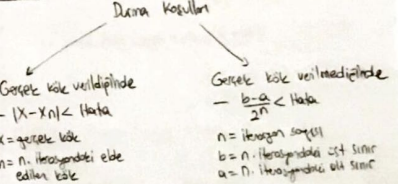 Durma Koşulları
Gerçek kök verildiğinde
- |X-Xn| < Hata
x = gerçek kök
n = n. iterasyondaki elde edilen kök
Gerçek kök verilmediğinde
- b-a / 2^n < Hata
n = iterasyon sayısı
b = n. iterasyondaki üst sınır
a = n. iterasyondaki alt sınır